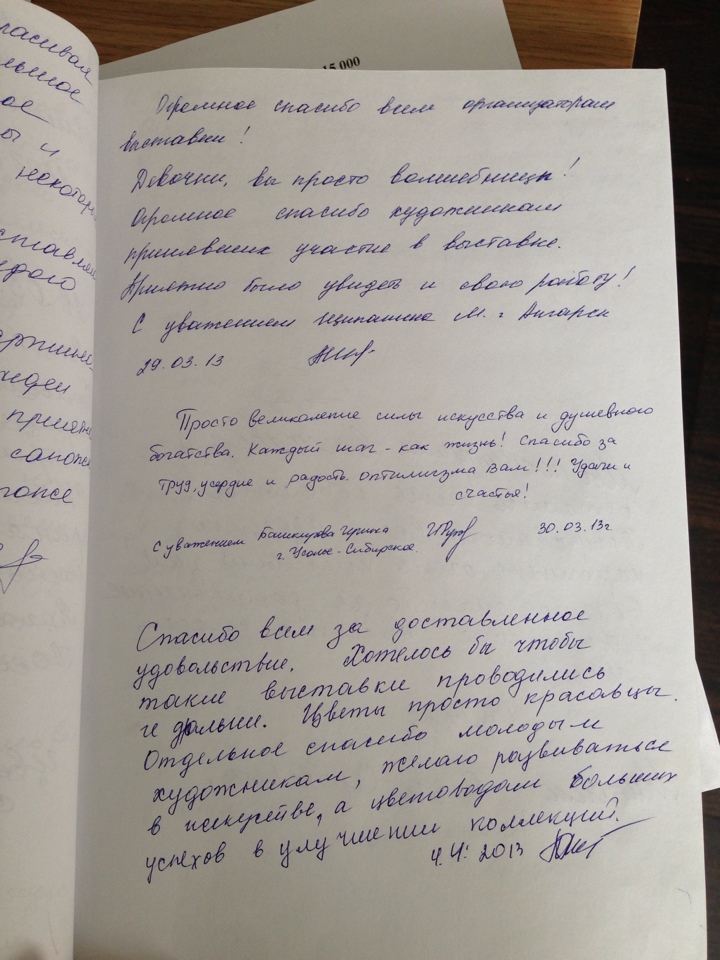 15 000
расивая
льное
ое
ы и
некотор
ставлен
ждого
идеи
прият
Огромное спасибо всем организаторам
выставки!
Девочки, вы просто волшебницы!
Огромное спасибо художникам
принявших участие в выставке.
Приятно было увидеть и свою работу!
С уважением М. г Ангарск
29.03.13
Просто великолепие силы искусства и душевного
богатства. Каждый шаг - как жизнь! Спасибо за
труд, усердие и радость оптимизма Вам!!! Удачи и
счастья!
С уважением Башкирова Ирина
30.03.13г.
г. Усолье-Сибирское.
Спасибо всем за доставленное
удовольствие. Хотелось бы чтобы
такие выставки проводились
и дальше. Цветы просто красавцы.
Отдельное спасибо молодым
художникам, желаю развиваться
в искусстве, а цветоводам больших
успехов в улучшении коллекций.
4.4. 2013